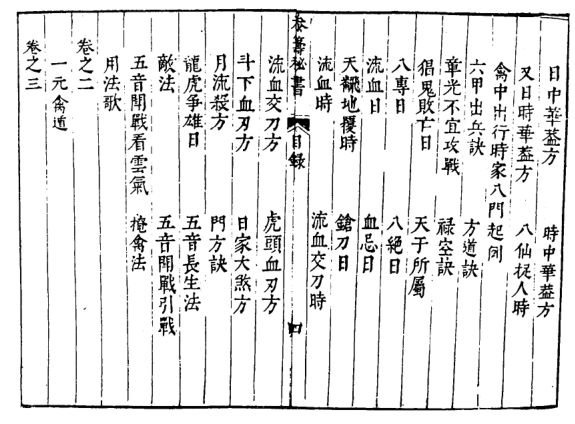 日中華葢方　時中華葢方
又日時華葢方　八仙捉人時
禽中出行時家八門起例
六甲出兵訣　方道訣
章光不宜攻戰　祿空訣
猖鬼敗亡日　天干所屬
八專日　八絕日
流血日　血忌日
天翻地覆時　鎗刀日
流血時　流血交刀時
參籌秘書　目錄　四
流血交刀方　虎頭血刃方
斗下血刃方　日家大煞方
月流殺方　門方訣
龍虎爭雄日　五音長生法
敵法　五音開戰引戰
五音開戰看雲氣　掩禽法
用法歌
卷之二
一元禽遁
卷之三